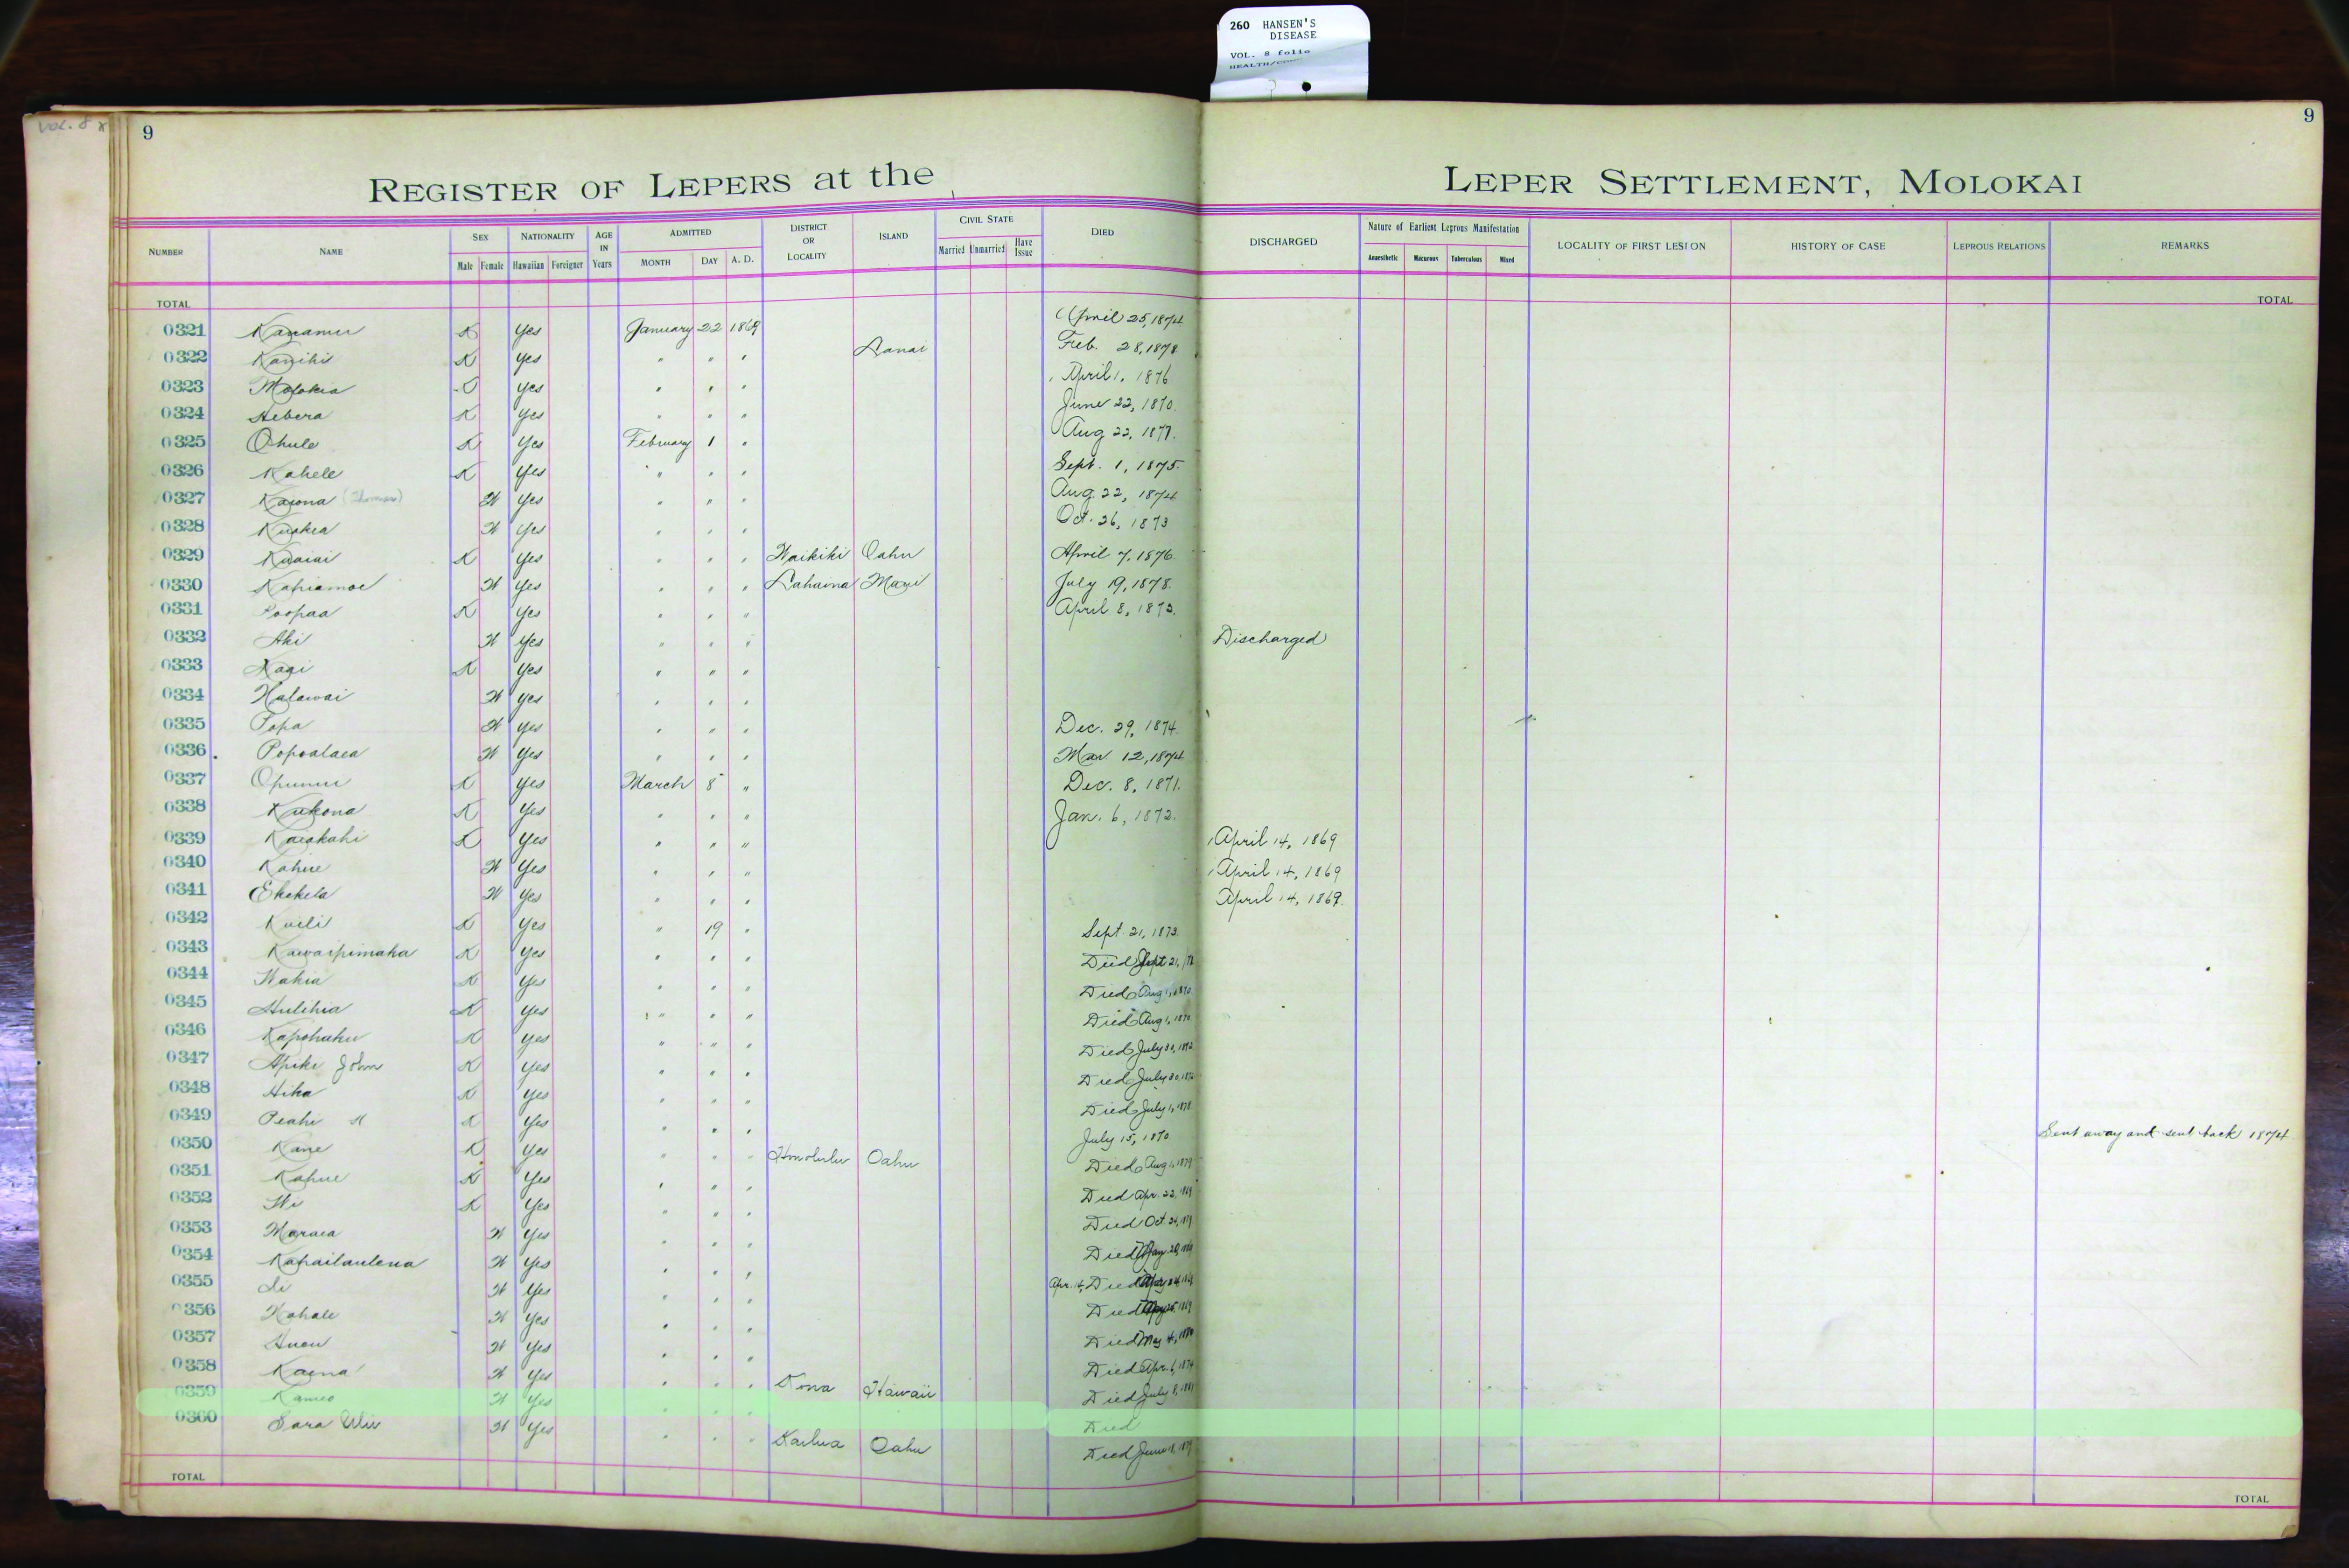 260 HANSEN'S
DISEASE
VOL. 8 folio
VOL. 8
9
9
REGISTER OF LEPERS at the LEPER SETTLEMENT, MOLOKAI
NUMBER NAME SEX Male Female NATIONALITY Hawaiian Foreigner AGE IN Years ADMITTED MONTH DAY A. D. DISTRICT OR LOCALITY ISLAND CIVIL STATE Married Unmarried Have Issue DIED DISCHARGED Nature of Earliest Leprous Manifestation Anaesthetic Macurous Tuberculous Mixed LOCALITY OF FIRST LESION HISTORY OF CASE LEPROUS RELATIONS REMARKS
TOTAL TOTAL
0321 Kanamu K Yes January 22 1869 April 25, 1874
0322 Kanihi K Yes " " " Lanai Feb. 28, 1878
0323 Molokia Yes " " " April 1, 1876
0324 Hebera K Yes " " " June 22, 1870
0325 Ohule K Yes February 1 " Aug 22, 1877.
0326 Kahele K Yes " " " Sept. 1, 1875.
0327 Kaiona W Yes " " " Aug. 22, 1874
0328 W Yes " " " Oct. 26, 1873
0329 K Yes " " " Waikiki Oahu April 7, 1876
0330 Kapiamoe W Yes " " " Lahaina Maui July 19, 1878.
0331 Poopaa K Yes " " " April 8, 1873.
0332 Aki W Yes " " " Discharged
0333 K Yes " " "
0334 Halawai W Yes " " "
0335 Popa W Yes " " " Dec. 29, 1874
0336 Popoalaea W Yes " " " Mar 12, 1874
0337 Opunui K Yes March 8 " Dec. 8, 1871.
0338 Kukona K Yes " " " Jan. 6, 1872.
0339 Kaiakahi K Yes " " " April 14, 1869
0340 Kahue W Yes " " " April 14, 1869
0341 Ekekela W Yes " " " April 14, 1869.
0342 Kuili K Yes " 19 " Sept. 21, 1873.
0343 Kawaipimaka K Yes " " " Died Sept 21,
0344 Wakia K Yes " " " Died Aug 1, 1870
0345 Hulihia K Yes " " " Died Aug 1, 1870
0346 Kapohaku K Yes " " " Died July 30, 1872
0347 Apiki John K Yes " " " Died July 30, 1872
0348 Hika K Yes " " " Died July 1, 1878
0349 Peahi K Yes " " " July 15, 1870 Sent away and sent back 1874
0350 Kane K Yes " " " Honolulu Oahu Died Aug 1, 1879
0351 Kahue K Yes " " " Died Apr. 22, 1869
0352 K Yes " " " Died Oct.
0353 Maraea W Yes " " " Died
0354 Kahailaulena W Yes " " " Apr. 14, Died
0355 W Yes " " " Died
0356 Kahale W Yes " " " Died May 4,
0357 W Yes " " " Died Apr. 6, 1874
0358 Kaena W Yes " " " Kona Hawaii Died July 8, 1881
0359 Kameo W Yes " " " Died
0360 Sara W Yes " " " Kailua Oahu Died June
TOTAL TOTAL